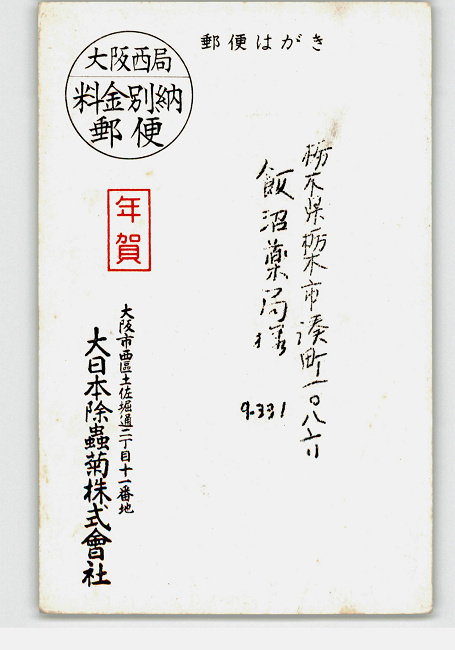 郵便はがき
大阪西局
料金別納
郵便
年賀
栃木県栃木市湊町一〇八六ノ
飯沼薬局様
9-331
大阪市西區土佐堀通二丁目十一番地
大日本除蟲菊株式會社